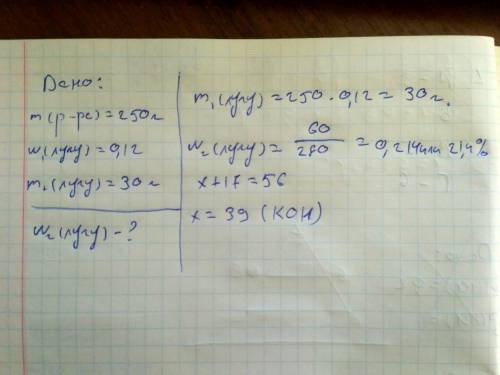 Дано:
m(р-ре)=250г
w₁(лугу)=0,12
m₁(лугу)=30г
w₂(лугу)-?
m₁(лугу)=250·0,12=30г.
w₂(лугу)=60/280=0,214или 21,4%
x+17=56
x=39 (KOH)